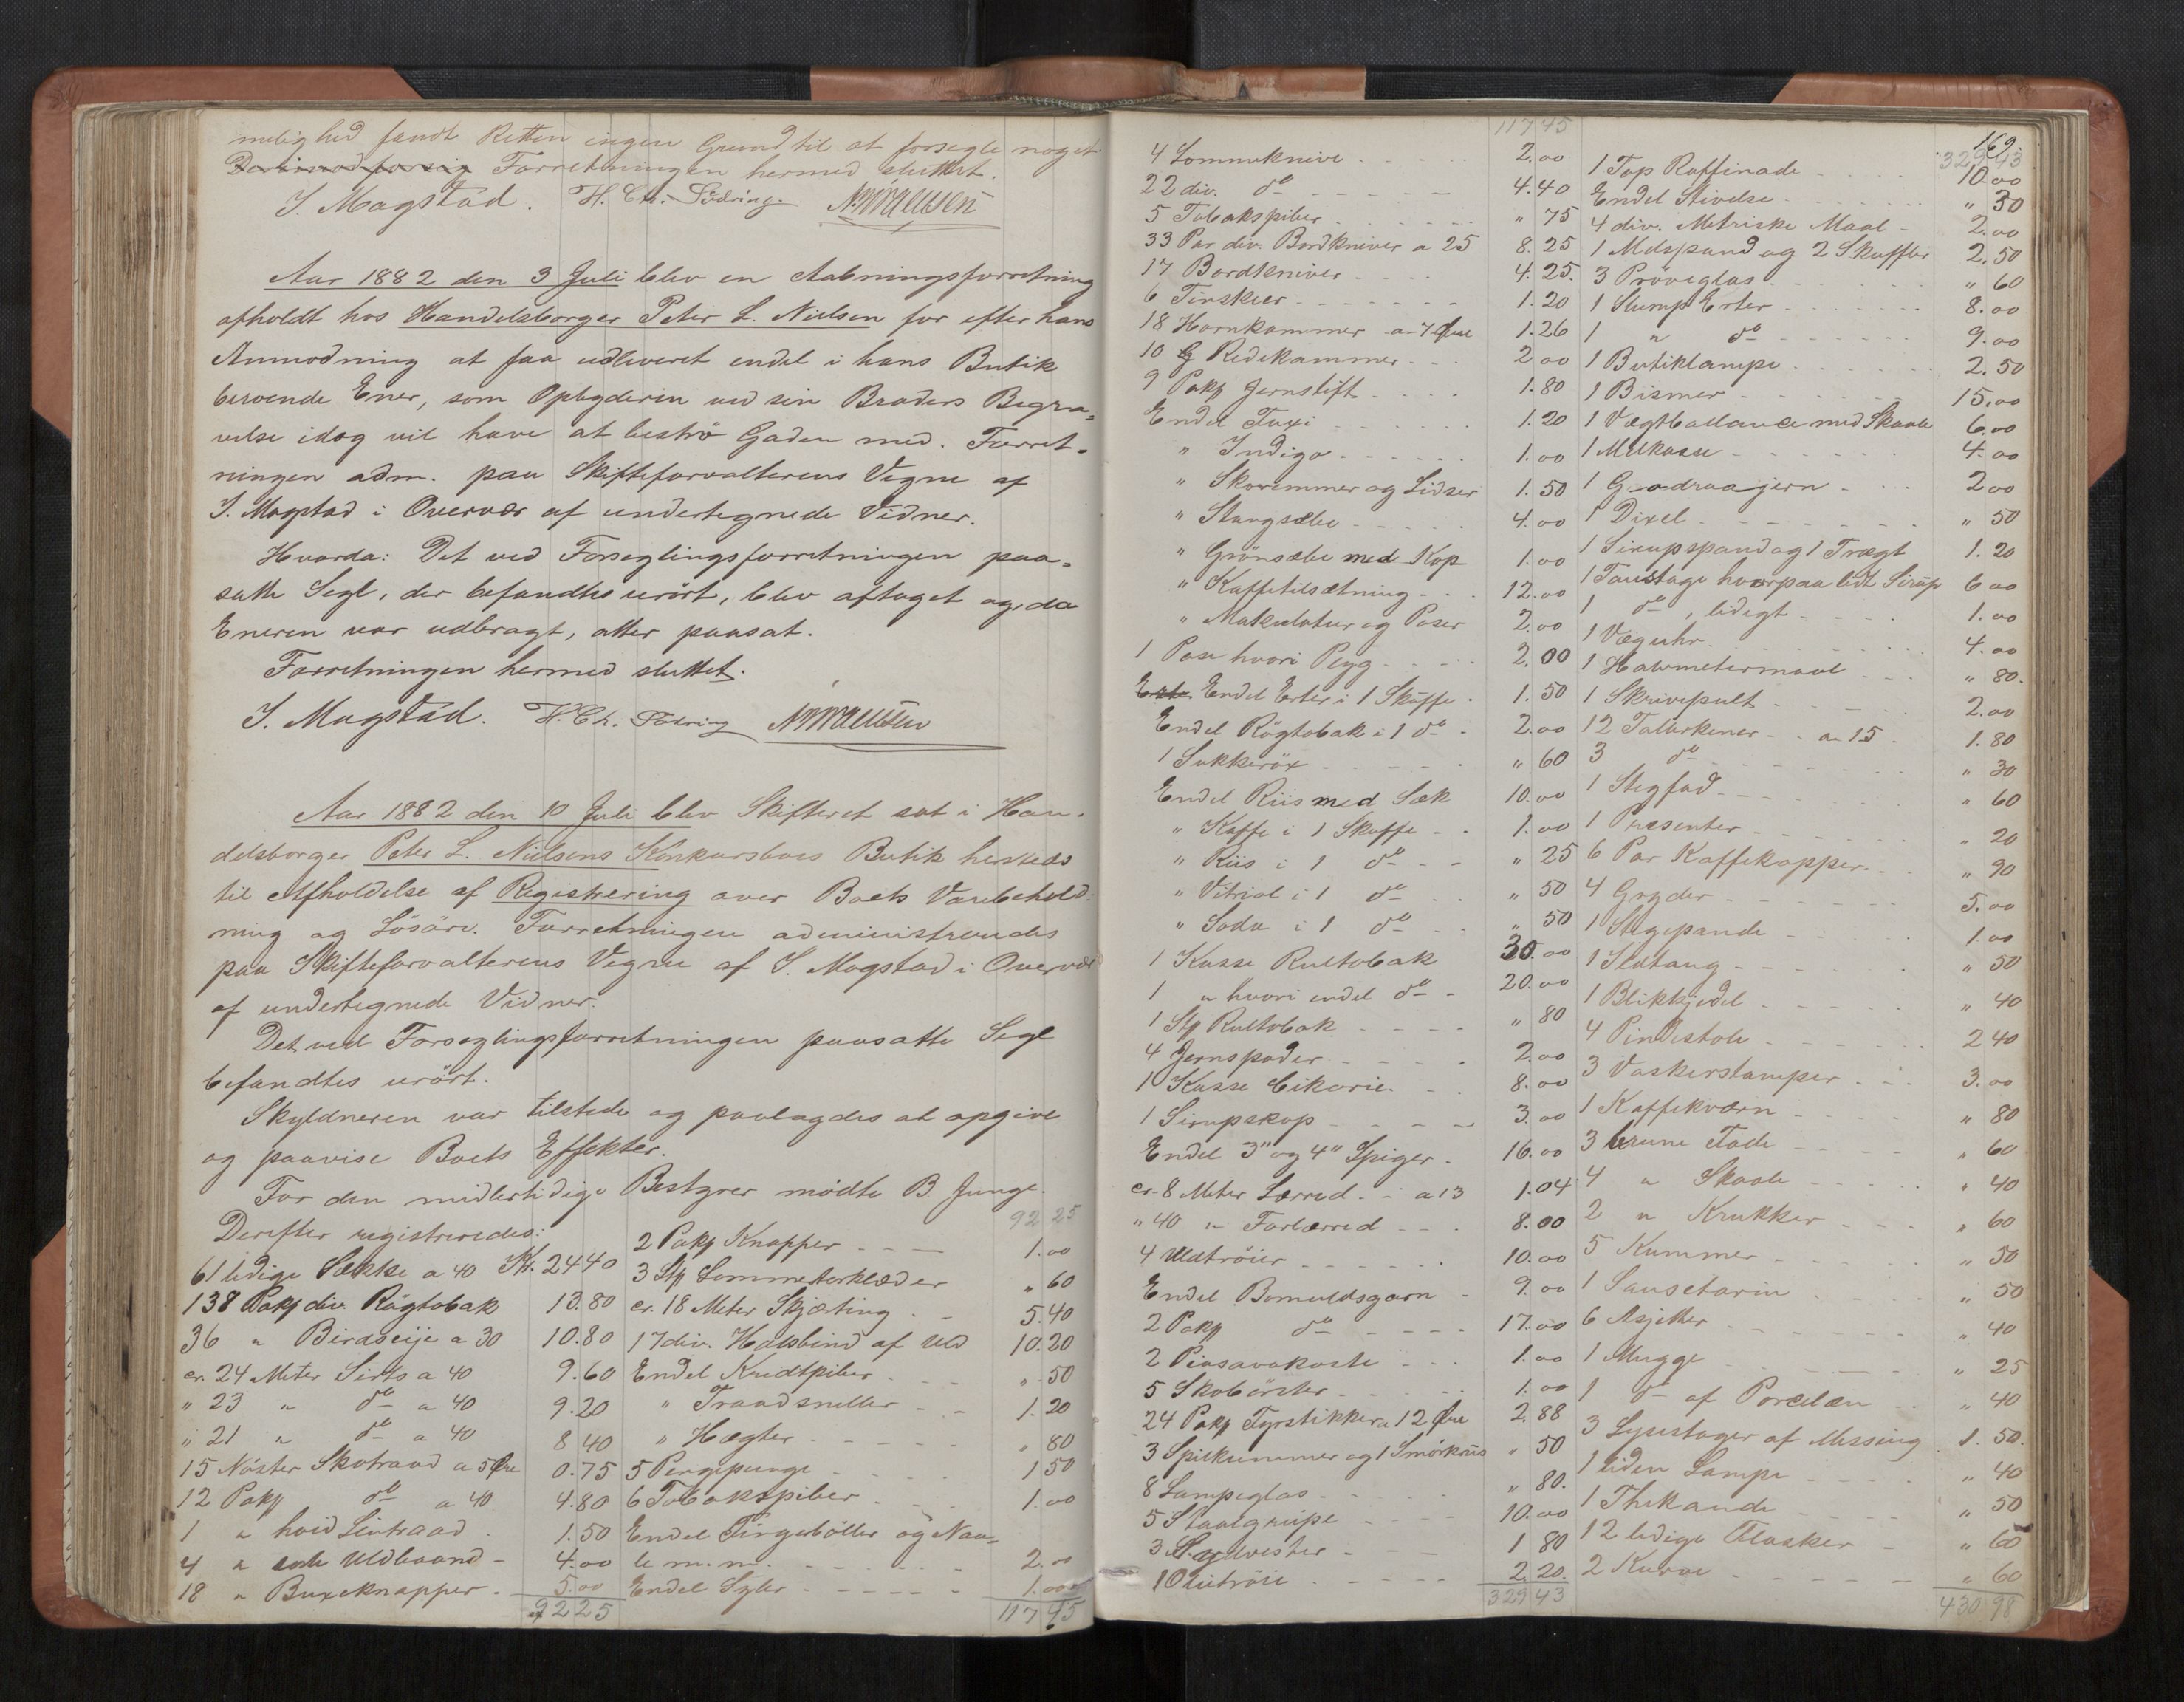 melighed fandt Retten ingen Grund til at forsegle noget.
Forretningen hermed sluttet.
S. Magstad. H. Ch. Södring.
Aar 1882 den 3 Juli blev en Aabningsforretning
afholdt hos Handelsborger Peter L. Nielsen for efter hans
Anmodning at faa udleveret endel i hans Butik
beroende Ener, som Opbyderen ved sin Broders Begra=
velse idag vil have at beströ Gaden med. Forret=
ningen adm. paa Skifteforvalterens Vegne af
S. Magstad i Overvær af undertegnede Vidner.
Hvorda: Det ved Forseglingsforretningen paa=
satte Segl, der befandtes urört, blev aftaget og, da
Eneren var udbragt, atter paasat.
Forretningen hermed sluttet.
S. Magstad. H. Ch. Södring
Aar 1882 den 10 Juli blev Skifteret sat i Han=
delsborger Peter L. Nielsens Konkursboes Butik hersteds
til Afholdelse af Registrering over Boets Varebehold=
ning og Lösöre. Forretningen administreredes
paa Skifteforvalterens Vegne af S. Magstad i Overvær
af undertegnede Vidner.
Det ved Forseglingsforretningen paasatte Segl
befandtes urört.
Skyldneren var tilstede og paalagdes at opgive
og paavise Boets Effekter.
For den midlertidige Bestyrer mödte B. Junge.
Derefter registreredes:
61 ledige Sække a 40 Kr. 24 40
138 Pakk div. Rögtobak 13.80
36 " Birdseije a 30 10.80
cr. 24 Meter Sirts a 40 9.60
" 23 " do a 40 9.20
" 21 " do a 40 8 40
15 Nöster Skotraad a 5 Öre 0.75
12 Pakk do a 40 4.80
1 " hvid Lintraad 1.50
4 " Uldbaand - 4.00
18 " Buxeknapper - 5.00
92 25
92 25
2 Pakk Knapper 1.00
3 Stk Lommetörklæder " 60
cr. 18 Meter Skjæting 5.40
17 div. Halsbind af Uld 10.20
Endel Kridtpiber " 50
" Traadsneller 1.20
" Hægter " 80
5 Pengepunge 1 50
6 Tobakspiber 1.00
Endel Fingerböller og Naa=
le m.m. 2.00
Endel Syler 1.00
117 45
117 45
4 Lommeknive 2.00
22 div. do 4.40
5 Tobakspiber " 75
33 Par div. Bordkniver a 25 8.25
17 Bordkniver 4.25.
6 Tinskeer 1.20
18 Hornkammer a 7 Öre 1.26
10 Redekammer 2 00
9 Pakk Jernstift 1.80
Endel Tuxi 1.20
" Indigo 1.00
" Skoremmer og Lidser 1.50
" Stangsæbe 4.00
" Grönsæbe med Kop 1.00
" Kaffetilsætning 12.00
" Makulatur og Poser 2.00
1 Pose hvori Pegg 2.00
Endel Erter i 1 Skuffe 1.50
Endel Rögtobak i 1 do 2.00
1 Sukkeröx " 60
Endel Riis med Sæk 10.00
" Kaffe i 1 Skuffe 1.00
" Riis i 1 do " 25
" Vitriol i 1 do " 50
" Soda i 1 do " 50
1 Kasse Rultobak 30.00
1 " hvori endel do 20.00
1 Stk Rultobak " 80
4 Jernspader 2.00
1 Kasse Cikorie 8.00
1 Sirupskop 3.00
Endel 3" og 4" Spiger 16.00
cr 8 Meter Lærred a 13 1.04
" 40 " Forlærred 8.00
4 Uldtröier 10.00
Endel Bomuldsgarn 9.00
2 Pakk do 17.00
2 Piasavakoste 1.00
5 Skobörster 1.00
24 Pakk Fyrstikker a 12 Öre 2.88
3 Spilkummer og 1 Smörkrus " 50
8 Lampeglas " 80.
5 Staalgreipe 10.00
3 Sydvester 1 80
1 Olietröie 2.20.
329 43
169.
329 43
1 Top Raffinade 10.00
Endel Stivelse " 30
4 div. Metriske Maal 2.00
1 Melspand og 2 Skuffer 2.50
3 Pröveglas " 60
1 Slump Erter 8.00
1 " do 9.00
1 Butiklampe 2.50
1 Bismer 15.00
1 Vægtballance med Skaale 6.00
1 Melkasse 4.00
1 G-adraajern 2 00
1 Dixel " 50
1 Sirupsspand og 1 Trægt 1.20
1 Faustage hvorpaa lidt Sirup 6 00
1 do, ledigt 1.00
1 Væguhr 4.00
1 Halvmetermaal " 80.
1 Skrivepult 2.00
12 Tallerkener a 15 1.80
3 do " 30
1 Stegfad " 60
1 Presenter " 20
6 Par Kaffekopper " 90
4 Gryder 5.00
1 Stegepande 1.00
1 Ildtang " 50
1 Blikkjedel " 40
4 Pindestole 2 40
3 Vaskerstamper 3.00
1 Kaffekværn " 80
3 brune Fade " 60
4 " Skaale " 40
2 " Krukker " 60
5 Kummer " 50
1 Sauseterin " 50
6 Asjetter " 40
1 Mugge " 25
1 do af Porcelæn " 40
3 Lysestager af Messing 1.50.
1 liden Lampe " 40
1 Thekande " 50
12 ledige Flasker " 60
2 Kurve " 60
430 98